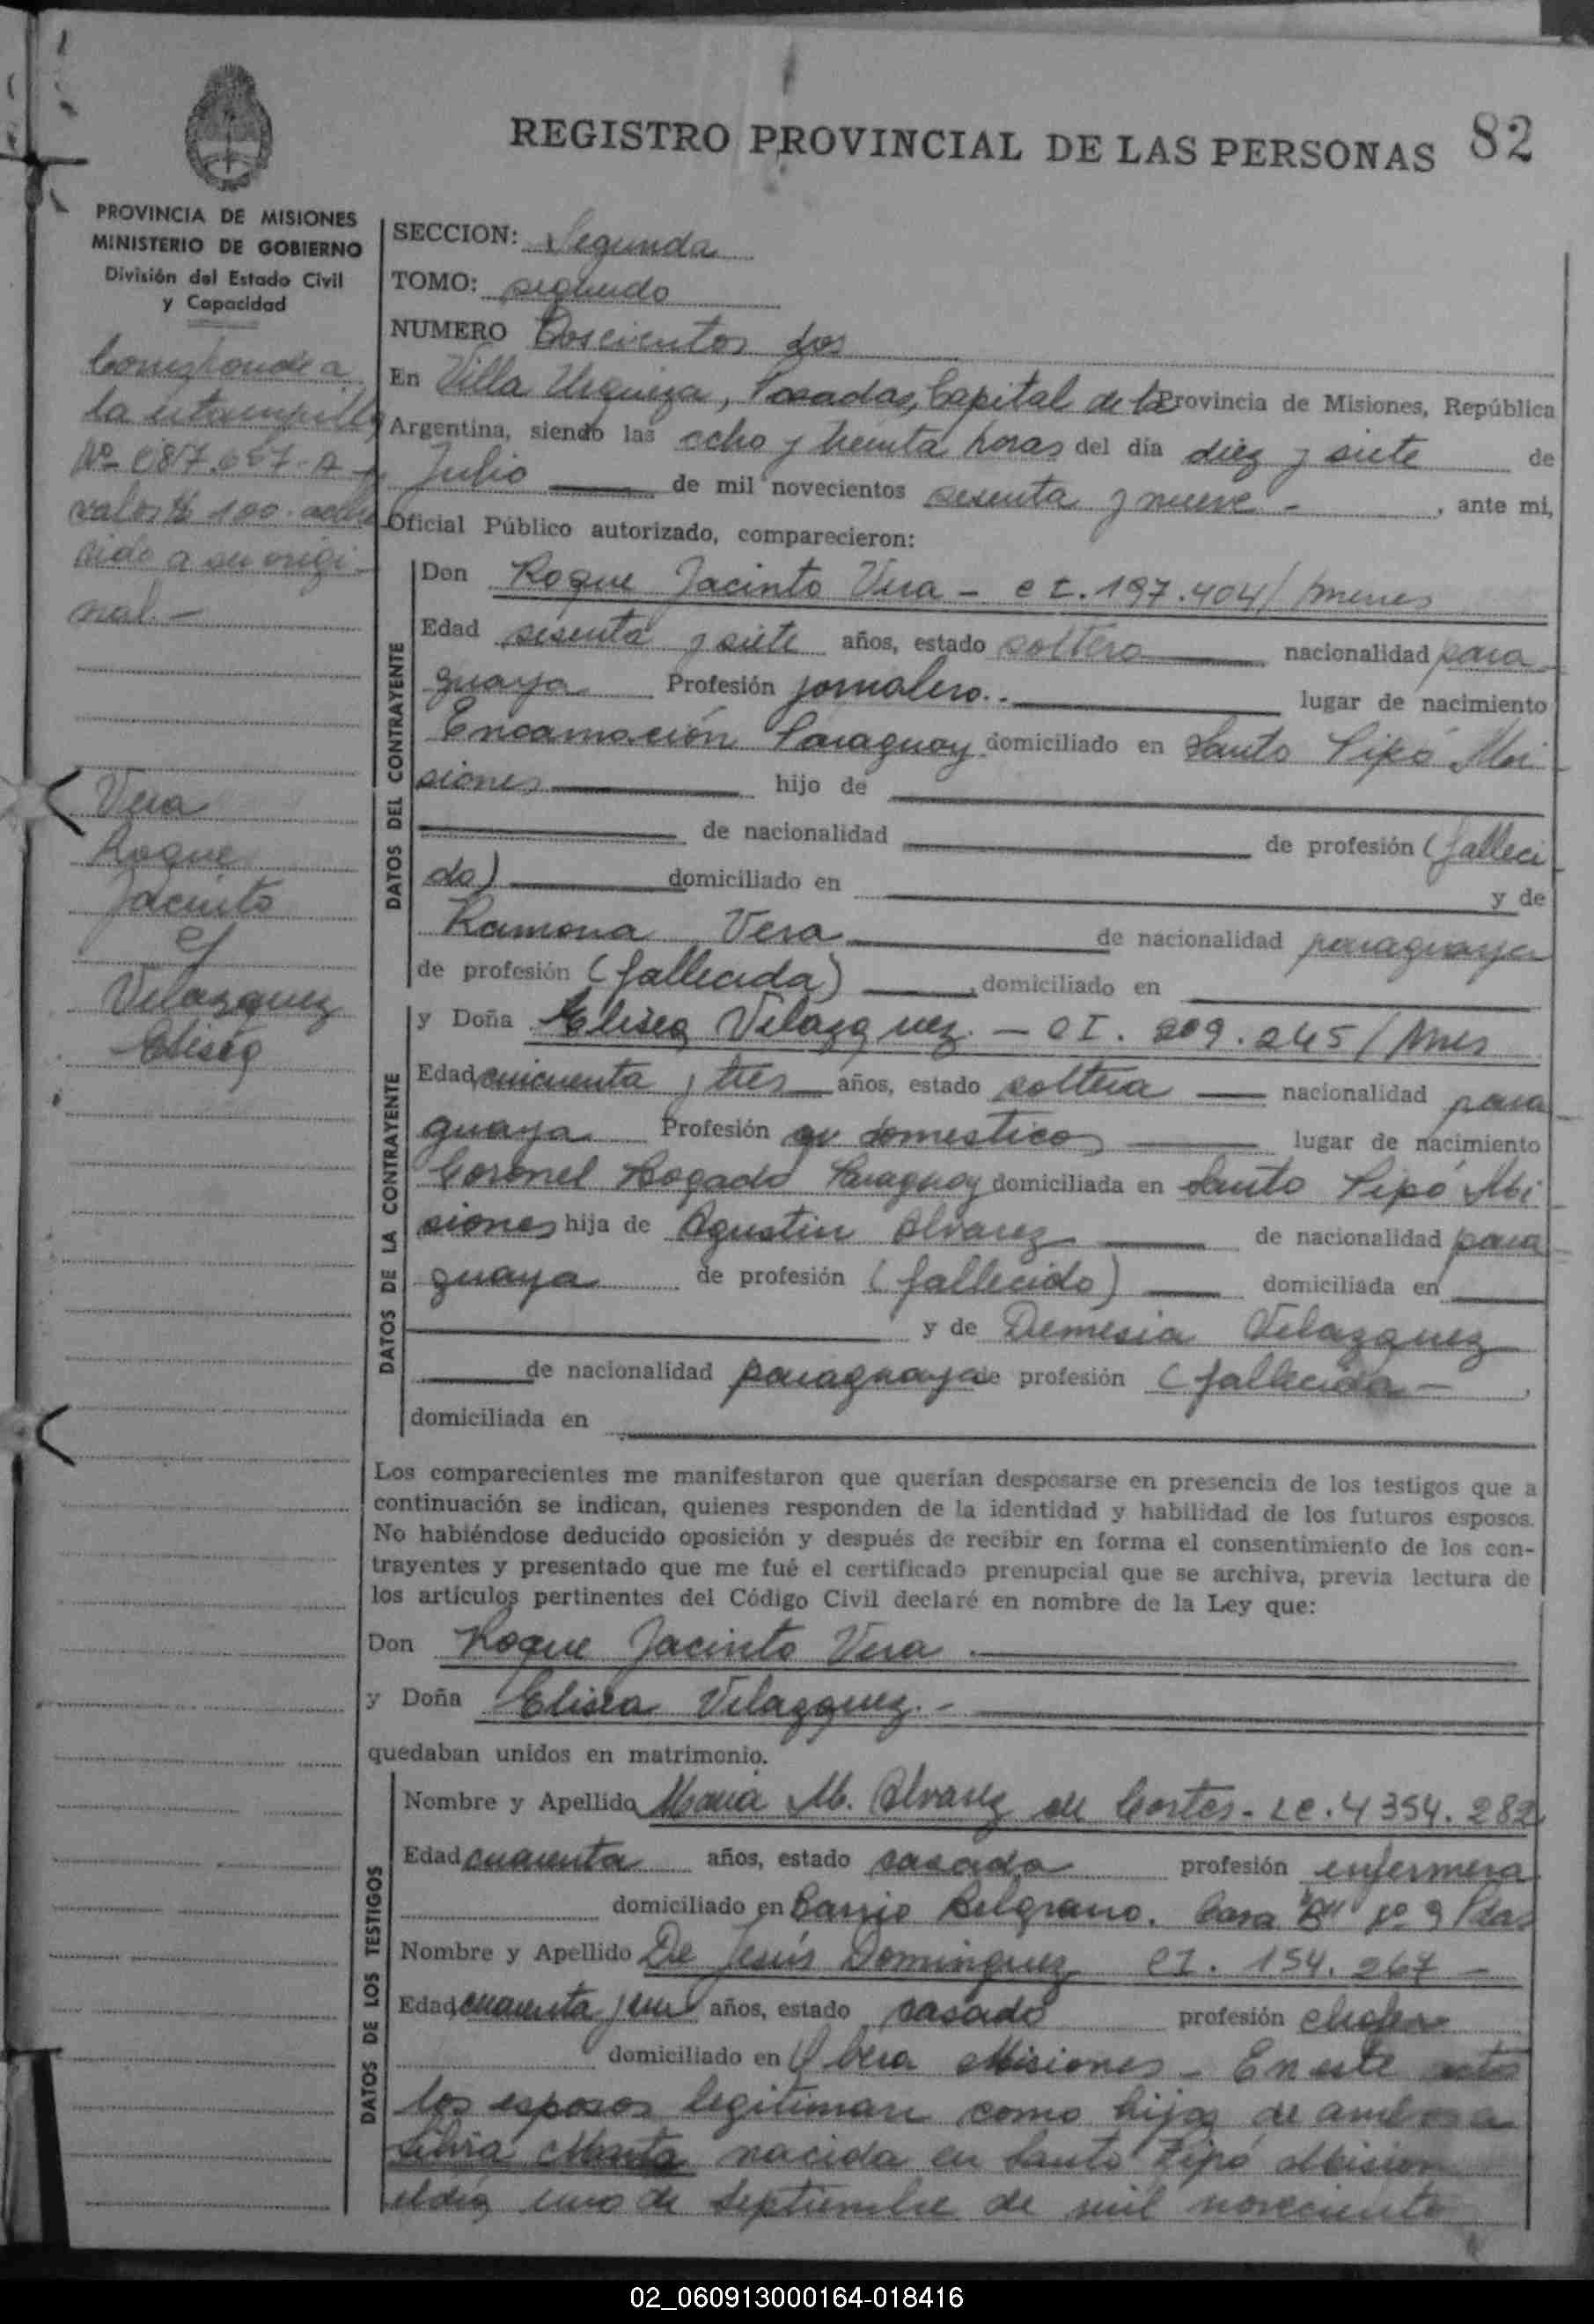 REGISTRO PROVINCIAL DE LAS PERSONAS 82
PROVINCIA DE MISIONES
MINISTERIO DE GOBIERNO
División del Estado Civil
y Capacidad
Corresponde a
la estampilla
Nº 087.667-A
valor $ 100. adhe
rida a su origi-
nal.-
Vera
Roque
Jacinto
y
Velazquez
Elisea
SECCION: Segunda
TOMO: segundo
NUMERO Doscientos dos
En Villa Urquiza, Posadas, Capital de la Provincia de Misiones, República
Argentina, siendo las ocho y treinta horas del día diez y siete de
Julio de mil novecientos sesenta y nueve - , ante mi,
Oficial Público autorizado, comparecieron:
DATOS DEL CONTRAYENTE
Don Roque Jacinto Vera - C I. 197.404/ Mnes
Edad sesenta y siete años, estado soltero nacionalidad para
guaya Profesión jornalero.- lugar de nacimiento
Encarnación Paraguay domiciliado en Santo Pipó Mi
siones hijo de
de nacionalidad de profesión (falleci
do) domiciliado en y de
Ramona Vera de nacionalidad paraguaya
de profesión (fallecida) , domiciliado en
DATOS DE LA CONTRAYENTE
y Doña Elisea Velazquez. - C I. 209.245 / Mnes
Edad cincuenta y tres años, estado soltera nacionalidad para
guaya Profesión qu domesticos lugar de nacimiento
Coronel Bogado Paraguay domiciliada en Santo Pipó Mi
siones hija de Agustin Alvarez de nacionalidad para
guaya de profesión (fallecido) domiciliada en
y de Demesia Velazquez
de nacionalidad paraguaya de profesión (fallecida - ,
domiciliada en
Los comparecientes me manifestaron que querían desposarse en presencia de los testigos que a
continuación se indican, quienes responden de la identidad y habilidad de los futuros esposos.
No habiéndose deducido oposición y después de recibir en forma el consentimiento de los con-
trayentes y presentado que me fué el certificado prenupcial que se archiva, previa lectura de
los artículos pertinentes del Código Civil declaré en nombre de la Ley que:
Don Roque Jacinto Vera .
y Doña Elisea Velazquez.-
quedaban unidos en matrimonio.
DATOS DE LOS TESTIGOS
Nombre y Apellido Maria M. Alvarez de Cortes - LC. 4354.282
Edad cuarenta años, estado casada profesión enfermera
domiciliado en Barrio Belgrano. Casa "B" Nº 9 Pdas
Nombre y Apellido De Jesús Dominguez CI. 154.267 -
Edad cuarenta y un años, estado casado profesión chofer
domiciliado en Obera Misiones - En este acto
los esposos legitiman como hija de ambos a
Silvia Marta nacida en Santo Pipó Misiones
el día uno de Septiembre de mil novecientos
02_060913000164-018416